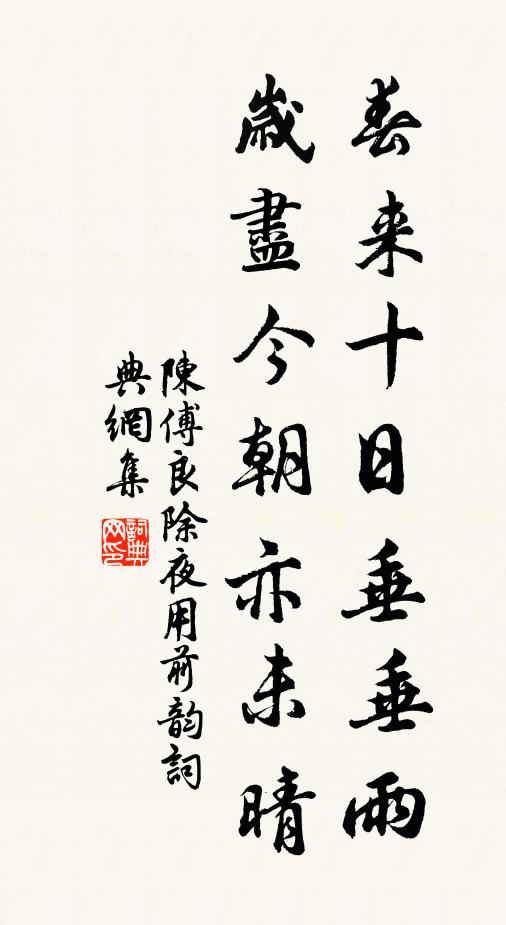 春来十日垂垂雨
歲盡今朝亦未晴
陳傅良除夜用前韵詞
典網集
詞典
网印